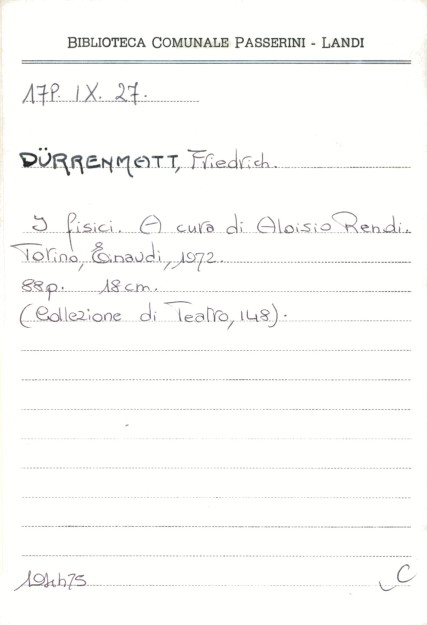 BIBLIOTECA COMUNALE PASSERINI - LANDI
17P. IX. 27.
DÜRRENMATT, Friedrich.
I fisici. A cura di Aloisio Rendi.
Torino, Einaudi, 1972.
88p. 18cm.
(Collezione di Teatro, 148).
C